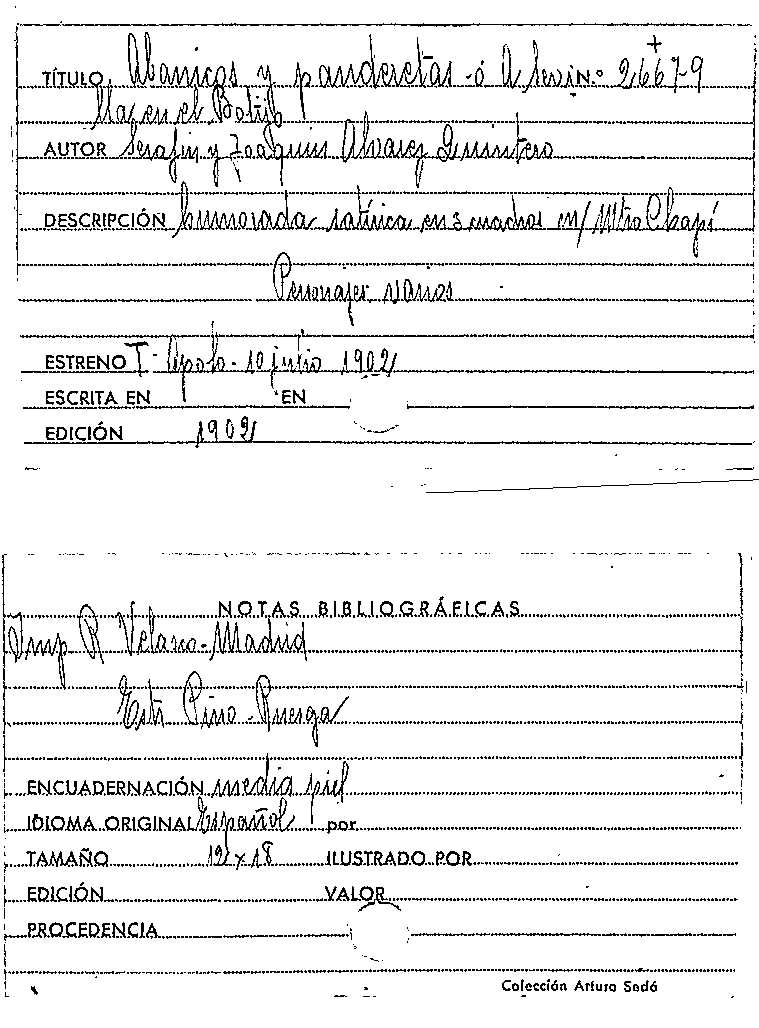 TÍTULO Abanicos y panderetas ó A Sevi N.º 26679
lla en el Botijo
AUTOR Serafín y Joaquín Alvarez Quintero
DESCRIPCIÓN humorada satírica en 3 cuadros m/ Mtro Chapí
Personajes varios
ESTRENO T- Apolo - 10 julio 1902
ESCRITA EN EN
EDICIÓN 1902
NOTAS BIBLIOGRÁFICAS
Imp R Velasco - Madrid
Estr Pino -
ENCUADERNACIÓN media piel
IDIOMA ORIGINAL Español por
TAMAÑO 12 x 18 ILUSTRADO POR
EDICIÓN VALOR
PROCEDENCIA
Colección Arturo Sedó